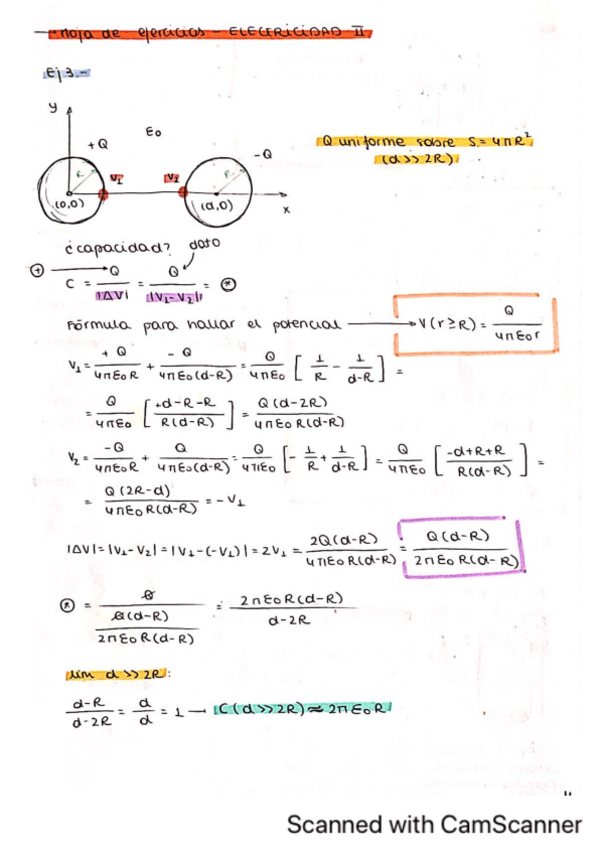 Hoja de ejercicios - ELECTRICIDAD II
Ej 3.-
y
+Q
ε₀
-Q
R
V₁
V₂
R
(0,0)
(d,0)
x
Q uniforme sobre S = 4πR²
(d >> 2R)
¿capacidad?
dato
⊕ → C = Q / |ΔV| = Q / |V₁-V₂| = ⊛
Fórmula para hallar el potencial → V(r≥R) = Q / 4πε₀r
V₁ = +Q / 4πε₀R + -Q / 4πε₀(d-R) = Q / 4πε₀ [ 1/R - 1/d-R ] =
= Q / 4πε₀ [ +d-R-R / R(d-R) ] = Q(d-2R) / 4πε₀R(d-R)
V₂ = -Q / 4πε₀R + Q / 4πε₀(d-R) = Q / 4πε₀ [ -1/R + 1/d-R ] = Q / 4πε₀ [ -d+R+R / R(d-R) ] =
= Q(2R-d) / 4πε₀R(d-R) = -V₁
|ΔV| = |V₁-V₂| = |V₁-(-V₁)| = 2V₁ = 2Q(d-R) / 4πε₀R(d-R) = Q(d-R) / 2πε₀R(d-R)
⊛ = Q / Q(d-R) / 2πε₀R(d-R) = 2πε₀R(d-R) / d-2R
lim d >> 2R:
d-R / d-2R = d / d = 1 → C(d>>2R) ≈ 2πε₀R
Scanned with CamScanner